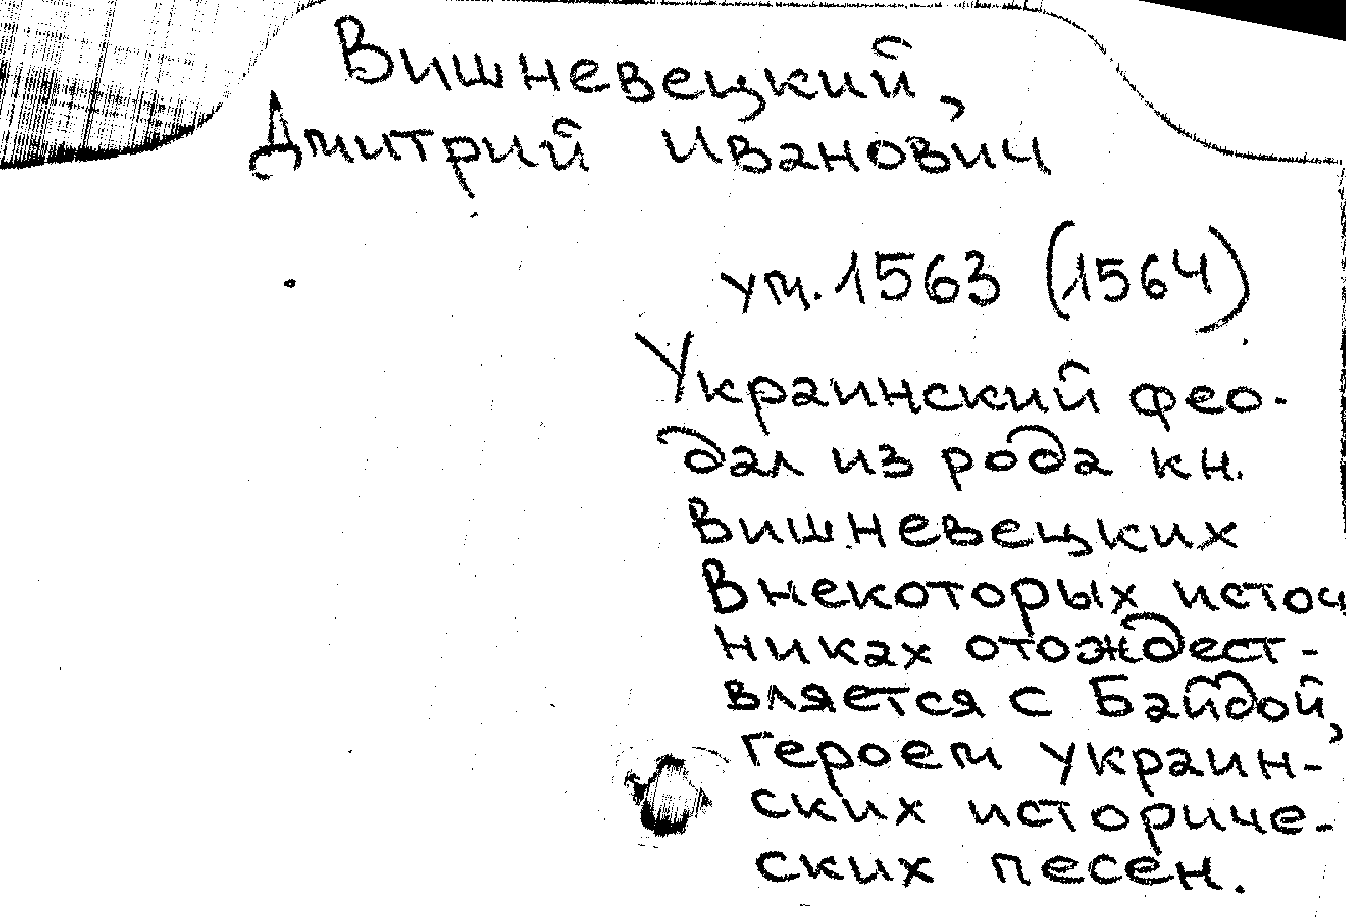 Вишневецкий,
Дмитрий Иванович
ум. 1563 (1564)
Украинский фео-
дал из рода кн.
Вишневецких
В некоторых источ
никах отождест-
вляется с Байдой,
героем украин-
ских историче-
ских песен.